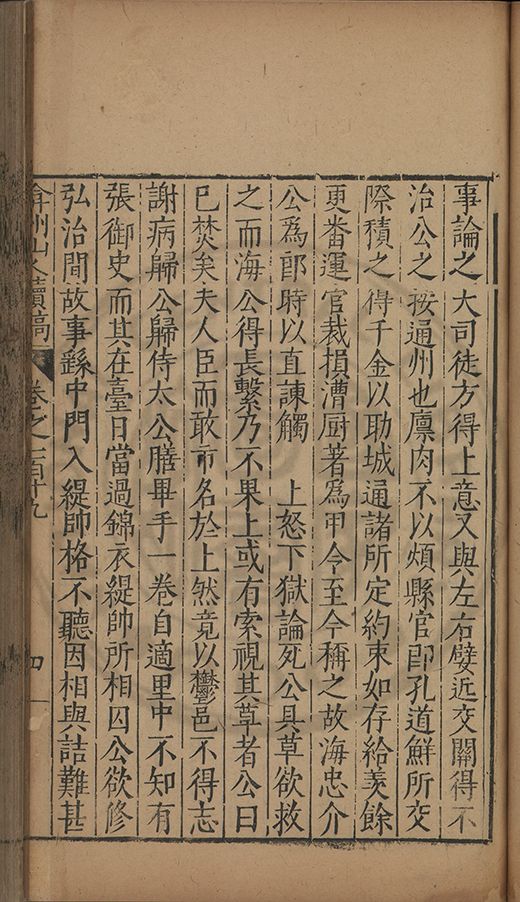 事論之大司徒方得上意又與左右嬖近交關得不
治公之按通州也廩肉不以煩縣官即孔道鮮所交
際積之得千金以助城通諸所定約束如存給羡餘
更番運官裁損漕厨著爲甲令至今稱之故海忠介
公爲郎時以直諫觸 上怒下獄論死公具草欲救
之而海公得長繫乃不果上或有索視其草者公曰
巳焚矣夫人臣而敢市名於上然竟以鬱邑不得志
謝病歸公歸侍太公膳畢手一卷自適里中不知有
張御史而其在臺日當過錦衣緹帥所相囚公欲修
弘治間故事繇中門入緹帥格不聽因相與詰難甚
弇州山人續稿 卷之一百十九 四